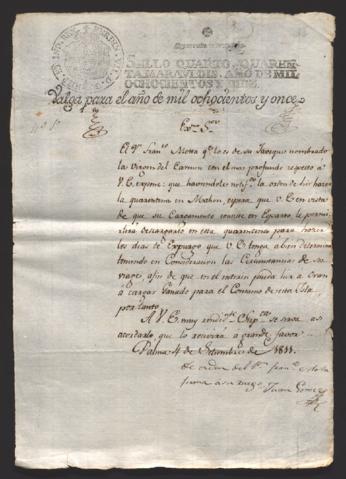 SELLO QUARTO, QUAREN-
TA MARAVEDIS, AÑO DE MIL
OCHOCIENTOS Y DIEZ.
Valga para el año de mil ochocientos y once
Exmo Sor
El Pn Franco Motta qe lo es de su Javeque nombrado
la Virgen del Carmen con el mas profundo respeto á
V.E. expone: que haviendole la orden de hir hacer
la quarentena en Mahon, espera que V.E. en vista
de que su Cargamento consiste en Esparto le permi-
tirá descargarlo en esta quarentena para hacer
los dias de Expurgo que V.E. tenga a bien determinar
teniendo en Consideracion las Circunstancias de su
viage, afin de que en el pueda hir a Oran
á cargar Ganado para el Consumo de esta Isla
por tanto
A V.E. muy rendidte Suppca se sirva asi
acordarlo, que lo recivirá a grande favor.
Palma 4 de Setiembre de 1811.
De orden del Pn Franco Motta
firma a su ruego Juan Gomez